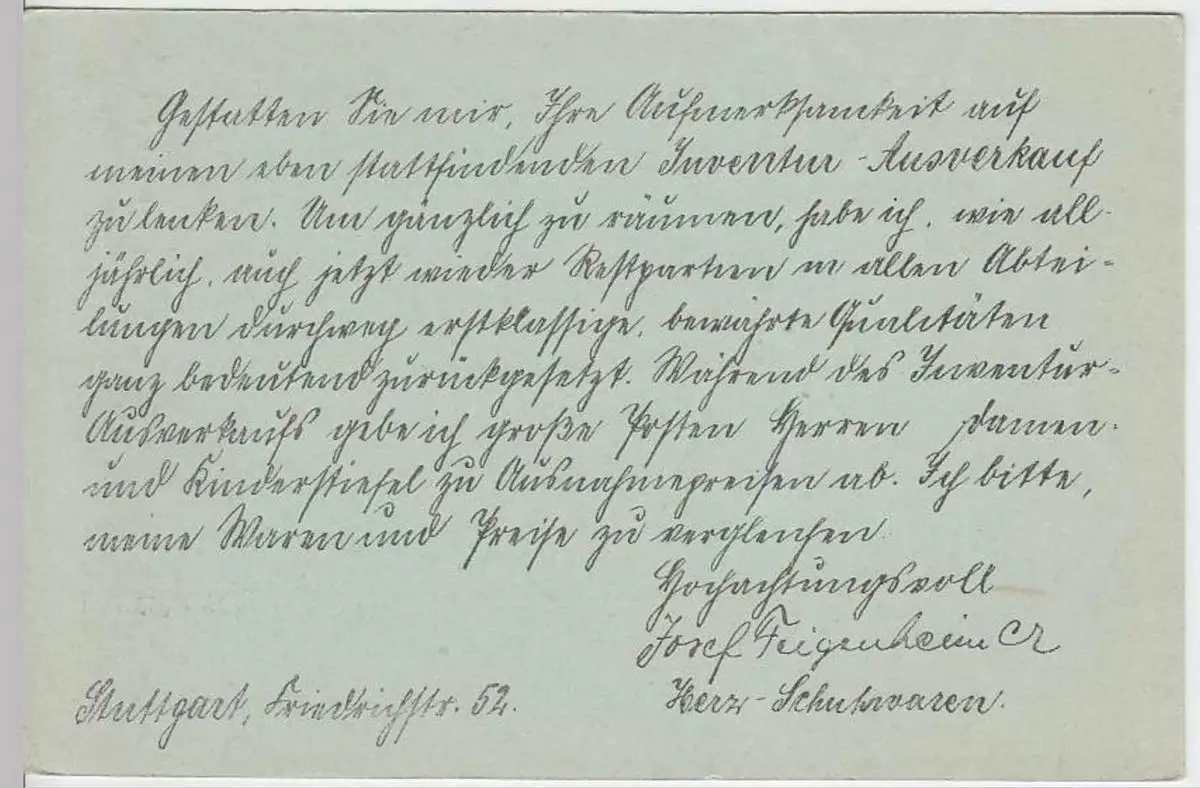 Gestatten Sie mir, Ihre Aufmerksamkeit auf
meinen eben stattfindenden Inventur-Ausverkauf
zu lenken. Um gänzlich zu räumen, habe ich, wie all-
jährlich, auch jetzt wieder Restpartien in allen Abtei-
lungen durchweg erstklassige, bewährte Qualitäten
ganz bedeutend zurückgesetzt. Während des Inventur-
Ausverkaufs gebe ich große Posten Herren Damen-
und Kinderstiefel zu Ausnahmepreisen ab. Ich bitte,
meine Waren und Preise zu vergleichen.
Hochachtungsvoll
Josef Feigenheimer
Stuttgart, Friedrichstr. 52.
Herz-Schuhwaren.